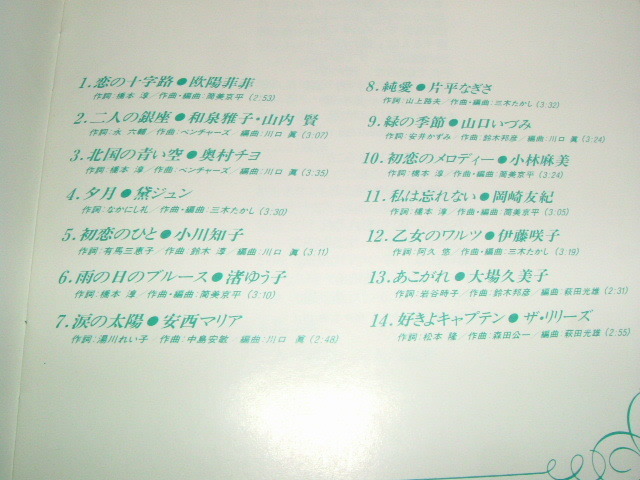 1. 恋の十字路●欧陽菲菲
作詞：橋本 淳／作曲・編曲：筒美京平(2:53)
2. 二人の銀座●和泉雅子・山内 賢
作詞：永 六輔／作曲：ベンチャーズ 編曲：川口 眞(3:07)
3. 北国の青い空●奥村チヨ
作詞：橋本 淳／作曲：ベンチャーズ／編曲：川口 眞(3:35)
4. 夕月●黛ジュン
作詞：なかにし礼／作曲・編曲：三木たかし(3:30)
5. 初恋のひと●小川知子
作詞：有馬三恵子／作曲：鈴木 淳／編曲：川口 眞(3:11)
6. 雨の日のブルース●渚ゆう子
作詞：橋本 淳／作曲・編曲：筒美京平(3:10)
7. 涙の太陽●安西マリア
作詞：湯川れい子／作曲：中島安敏／編曲：川口 眞(2:48)
8. 純愛●片平なぎさ
作詞：山上路夫／作曲・編曲：三木たかし(3:32)
9. 緑の季節●山口いづみ
作詞：安井かずみ／作曲：鈴木邦彦／編曲：川口 眞(3:24)
10. 初恋のメロディー●小林麻美
作詞：橋本 淳／作曲・編曲：筒美京平(3:24)
11. 私は忘れない●岡崎友紀
作詞：橋本 淳／作曲・編曲：筒美京平(3:05)
12. 乙女のワルツ●伊藤咲子
作詞：阿久 悠／作曲・編曲：三木たかし(3:19)
13. あこがれ●大場久美子
作詞：岩谷時子／作曲：鈴木邦彦／編曲：萩田光雄(2:31)
14. 好きよキャプテン●ザ・リリーズ
作詞：松本 隆／作曲：森田公一／編曲：萩田光雄(2:55)